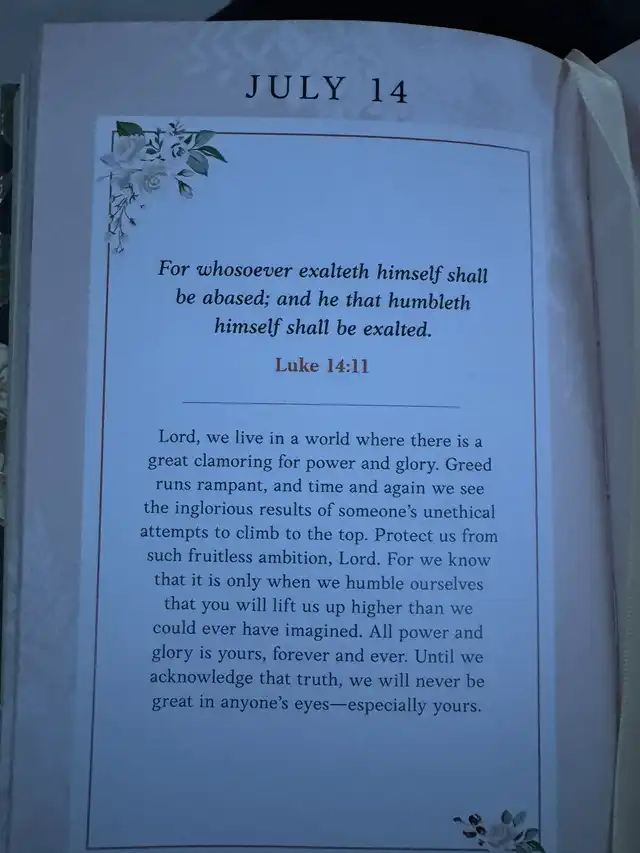 JULY 14
For whosoever exalteth himself shall
be abased; and he that humbleth
himself shall be exalted.
Luke 14:11
Lord, we live in a world where there is a
great clamoring for power and glory. Greed
runs rampant, and time and again we see
the inglorious results of someone's unethical
attempts to climb to the top. Protect us from
such fruitless ambition, Lord. For we know
that it is only when we humble ourselves
that you will lift us up higher than we
could ever have imagined. All power and
glory is yours, forever and ever. Until we
acknowledge that truth, we will never be
great in anyone's eyes—especially yours.